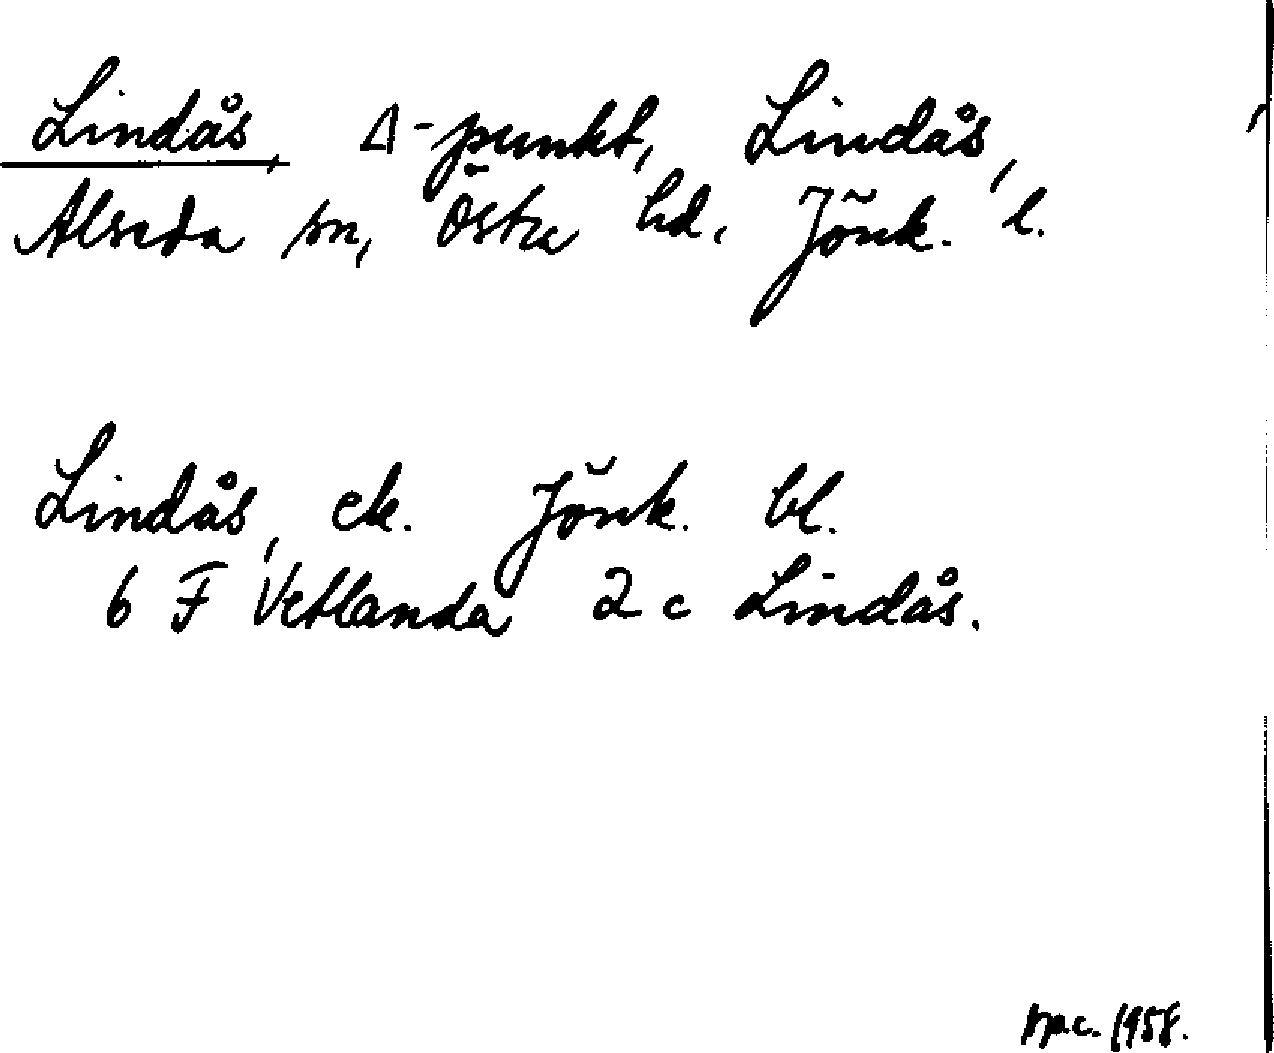 Lindås, Δ-punkt, Lindås,
Alseda sn, Östra hd. Jönk. l.
Lindås, ek. Jönk. bl.
6 F Vetlanda 2 c Lindås.
1958.